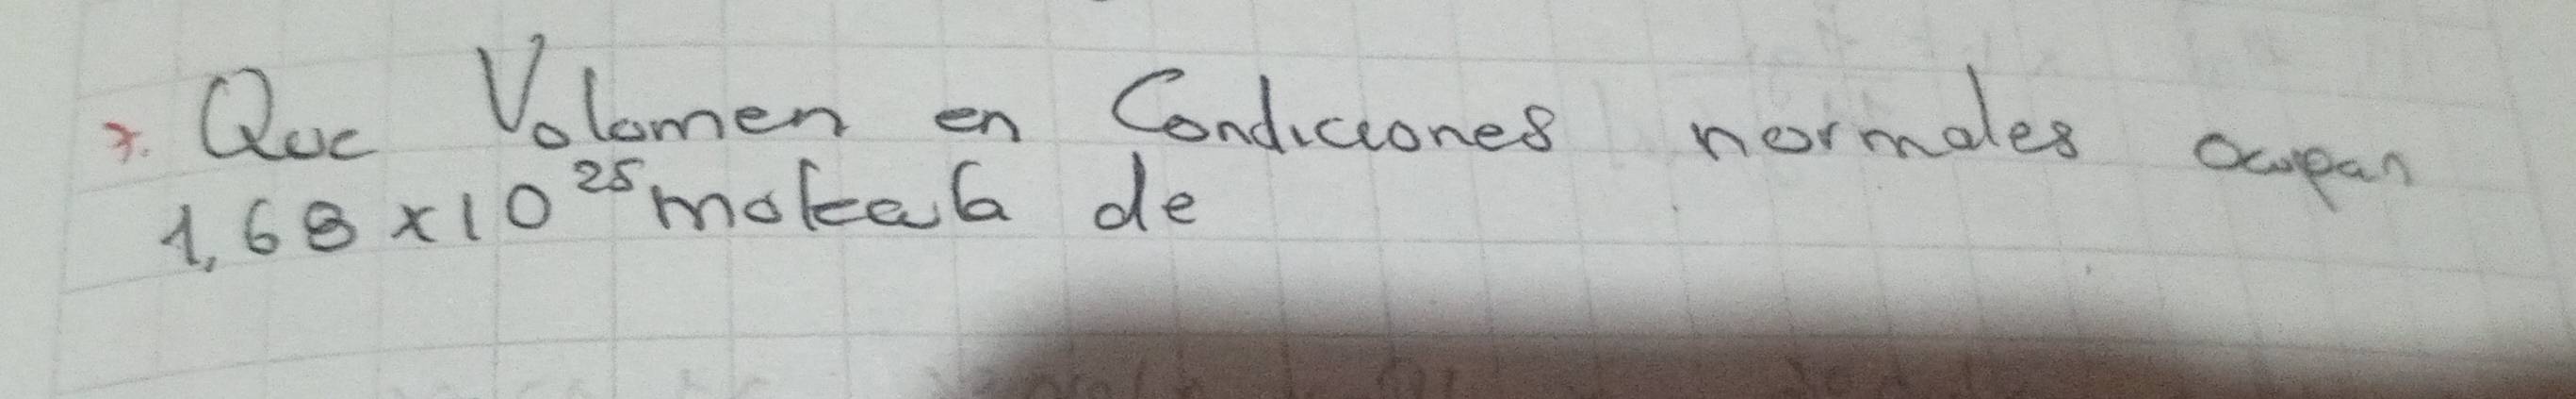 7. Que Volumen en Condiciones normales ocupan
1,68 x 10²⁵ molecula de